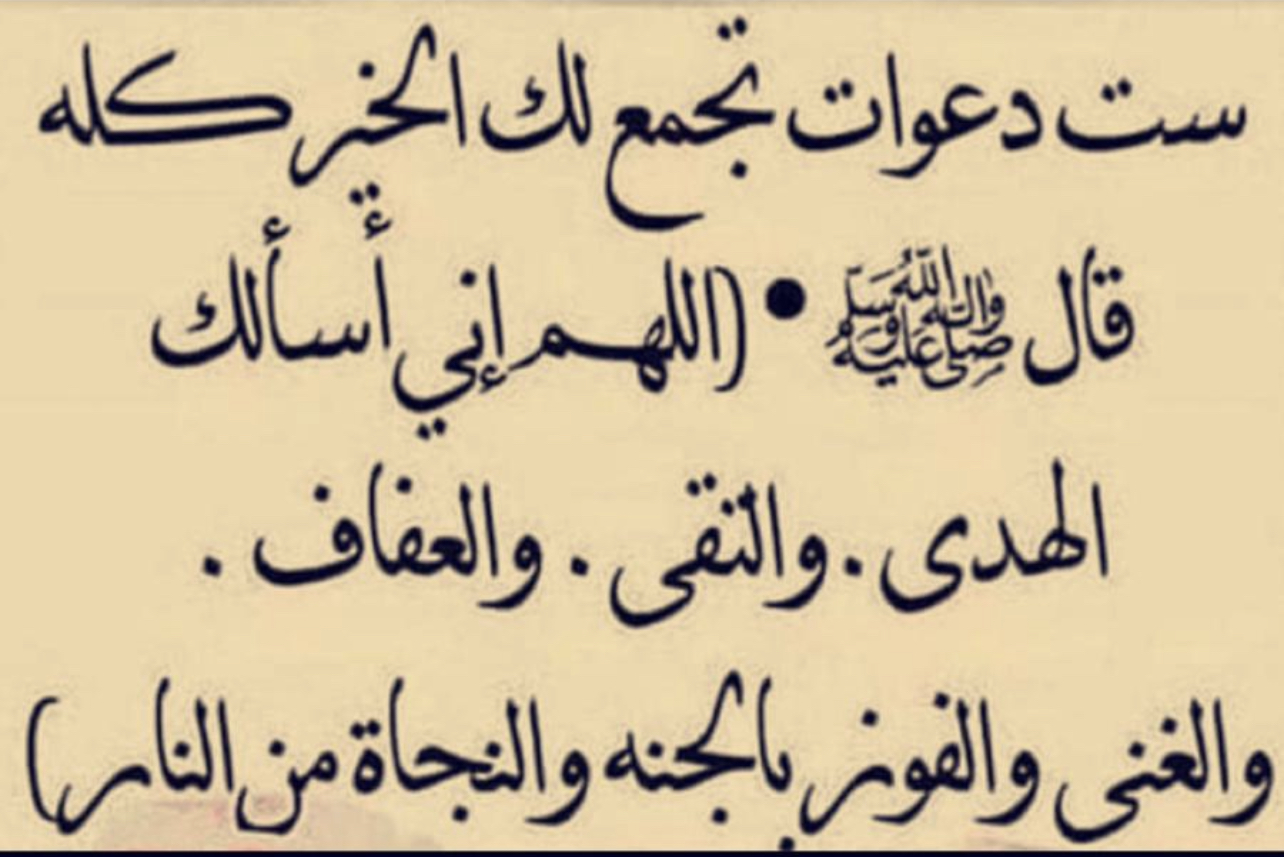 ست دعوات تجمع لك الخير كله
قال ﷺ • (اللهم إني أسألك
الهدى . والتقى . والعفاف .
والغنى والفوز بالجنه والنجاة من النار)